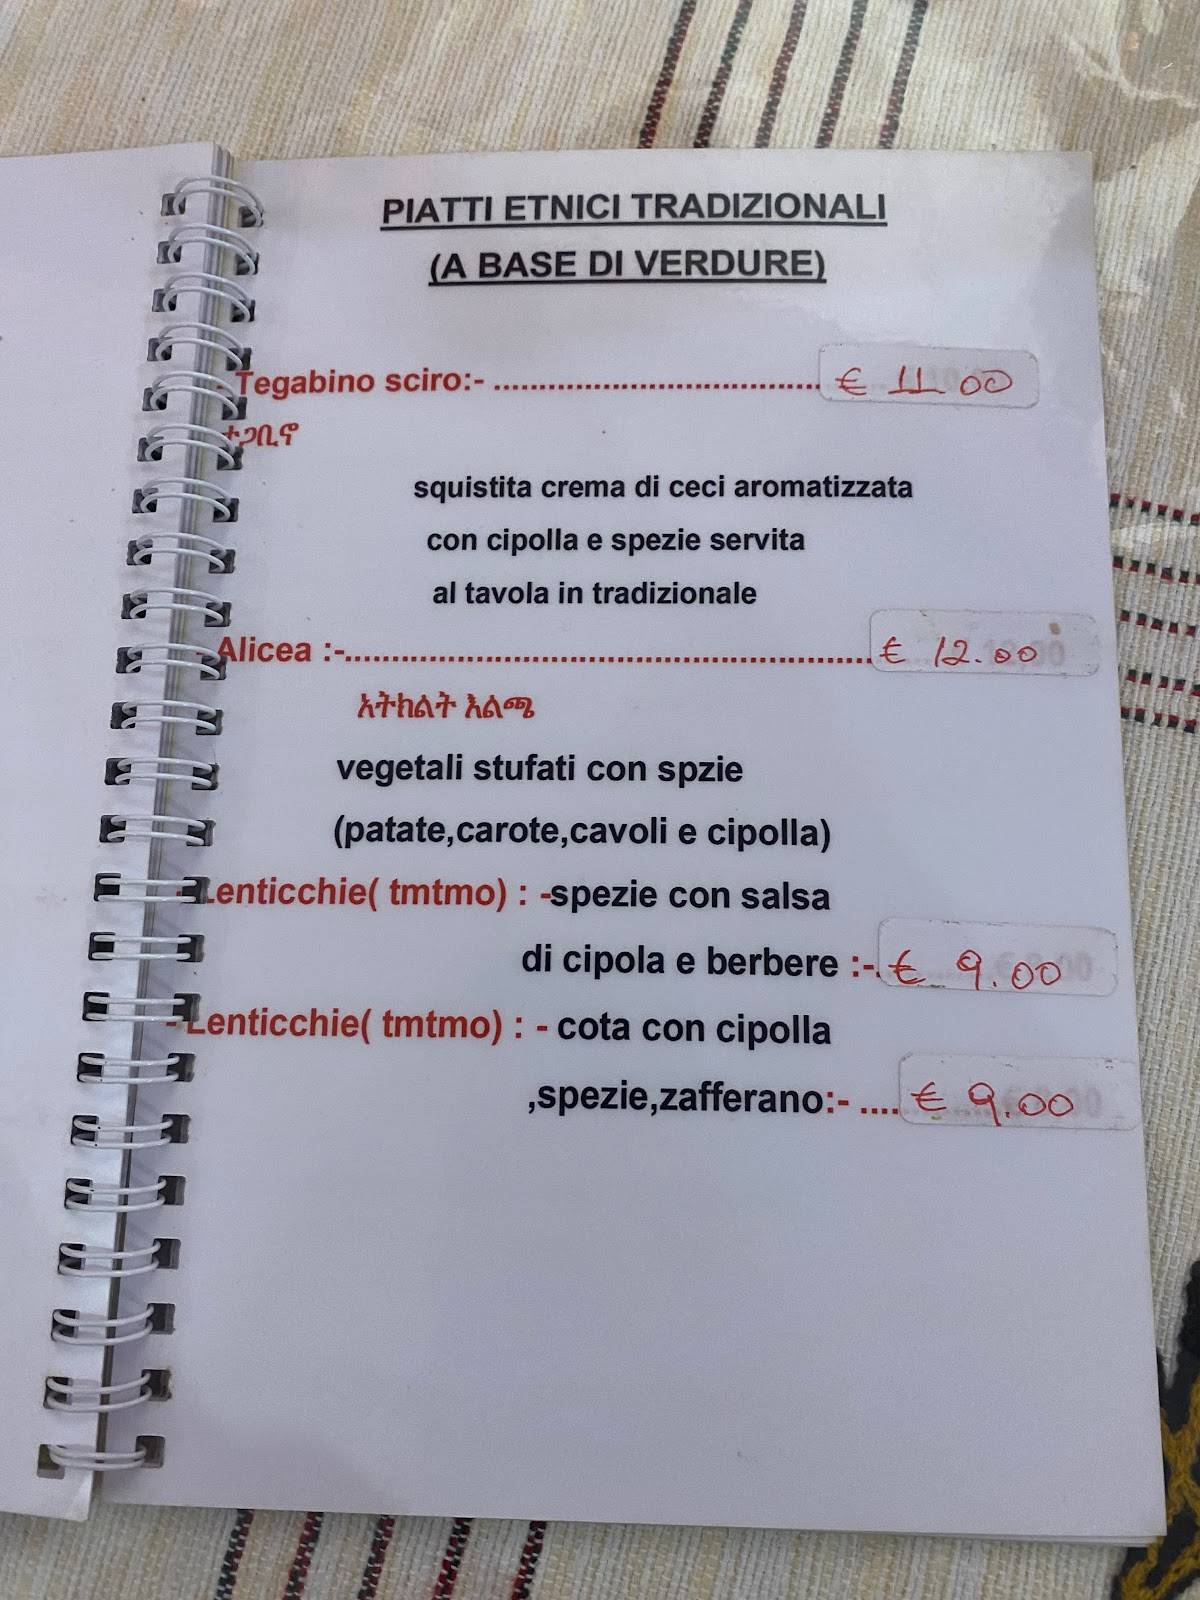 PIATTI ETNICI TRADIZIONALI
(A BASE DI VERDURE)
- Tegabino sciro:- .................................... € 11 00
ተጋቢኖ
squistita crema di ceci aromatizzata
con cipolla e spezie servita
al tavola in tradizionale
- Alicea :-........................................................ € 12.00
አትክልት እልጫ
vegetali stufati con spzie
(patate,carote,cavoli e cipolla)
- Lenticchie( tmtmo) : -spezie con salsa
di cipola e berbere :-. € 9.00
- Lenticchie( tmtmo) : - cota con cipolla
,spezie,zafferano:- .... € 9.00